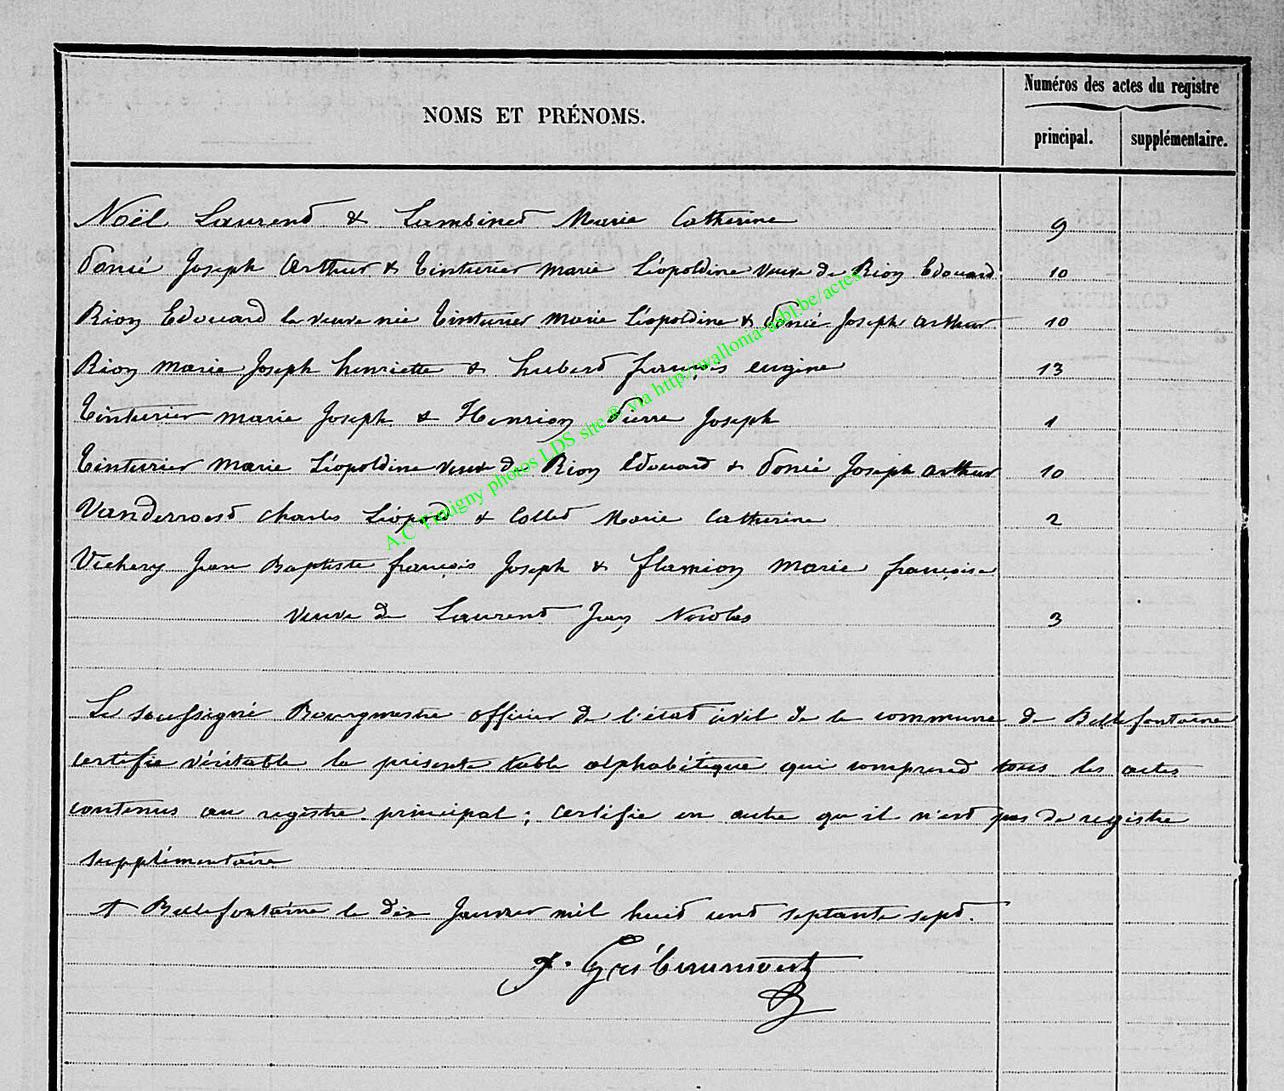 Numéros des actes du registre
NOMS ET PRÉNOMS.
principal.
supplémentaire.
Noël Laurend & Lambined Marie Catherine 9
Poncé Joseph Arthur & Tinturier Marie Léopoldine veuve de Rion Edouard 10
Rion Edouard la veuve née Tinturier Marie Léopoldine & Poncé Joseph Arthur 10
Rion Marie Joseph henriette & huberd françois eugène 13
Tinturier Marie Joseph & Henrion Pierre Joseph 1
Tinturier Marie Léopoldine veuve de Rion Edouard & Poncé Joseph Arthur 10
Charles Léopold & Colled Marie Catherine 2
Vichery Jean Baptiste françois Joseph & flamion Marie françoise
veuve de Laurend Jean Nicolas 3
Le soussigné Bourgmestre officier de l'état civil de la commune de Bellefontaine
certifie véritable la présente table alphabétique qui comprend tous les actes
contenus au registre principal; certifie en outre qu'il n'est pas de registre
supplémentaire
A Bellefontaine le dix Janvier mil huit cent septante sept.
J. Gribaumont
A.C Tintigny photos LDS site® via http://wallonia-asbl.be/actes